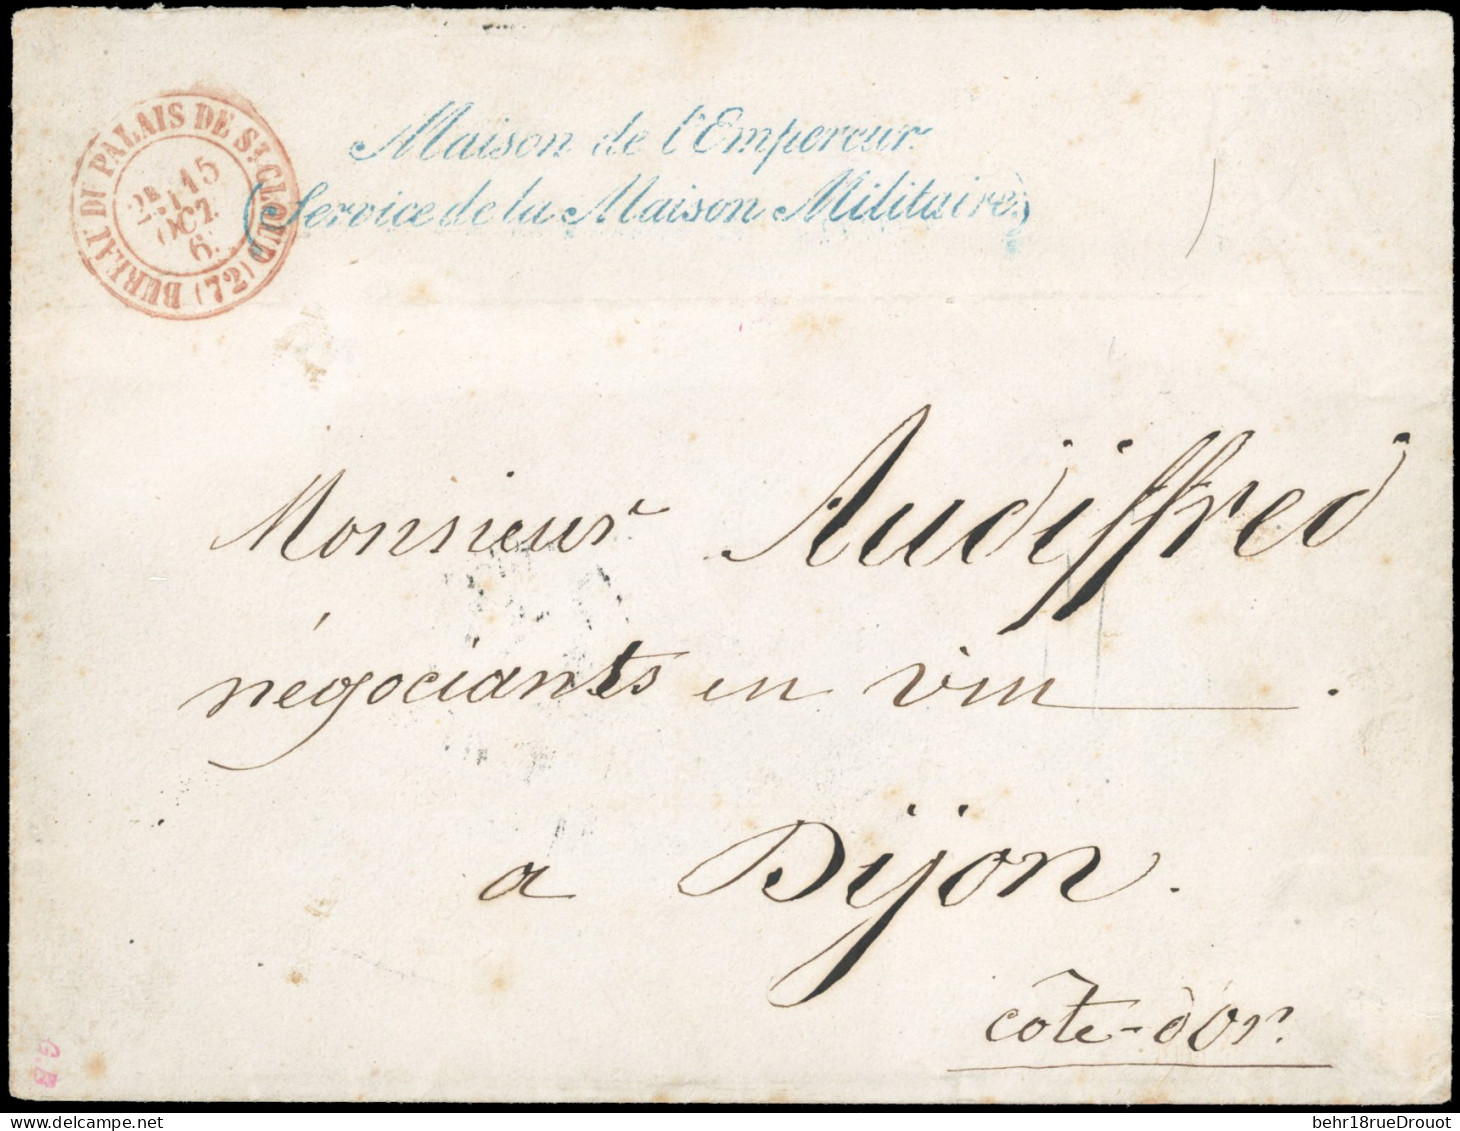 BUREAU DU PALAIS DE St CLOUD (72)
15
OCT.
6
Maison de l'Empereur
(Service de la Maison Militaire)
Monsieur Audiffred
négociants en vin .
a Dijon.
côte-d'or.
G.B
behr18rueDrouot